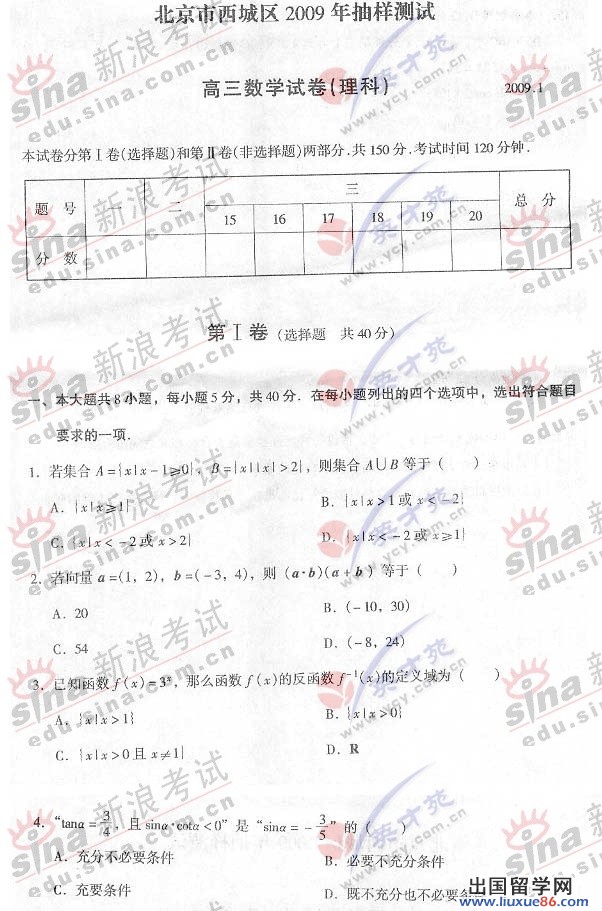 北京市西城区 2009 年抽样测试
高三数学试卷(理科)
2009.1
本试卷分第Ⅰ卷(选择题)和第Ⅱ卷(非选择题)两部分.共 150 分.考试时间 120 分钟.
题 号 一 二 三 总 分
15 16 17 18 19 20
分 数
第Ⅰ卷 (选择题 共 40 分)
一、本大题共 8 小题，每小题 5 分，共 40 分．在每小题列出的四个选项中，选出符合题目
要求的一项.
1. 若集合 A={x|x-1≥0}，B={x||x|>2}，则集合 A∪B 等于 ( )
A. {x|x≥1} B. {x|x>1或 x<-2}
C. {x|x<-2或 x>2} D. {x|x<-2或 x≥1}
2. 若向量 a=(1, 2)，b=(-3, 4)，则 (a·b)(a+b) 等于 ( )
A. 20 B. (-10, 30)
C. 54 D. (-8, 24)
3. 已知函数 f(x)=3ˣ，那么函数 f(x)的反函数 f⁻¹(x)的定义域为 ( )
A. {x|x>1} B. {x|x>0}
C. {x|x>0 且 x≠1} D. R
4. “tanα=3/4，且 sinα·cotα<0” 是 “sinα=-3/5” 的 ( )
A. 充分不必要条件 B. 必要不充分条件
C. 充要条件 D. 既不充分也不必要
sina 新浪考试
edu.sina.com.cn
英才苑
www.ycy.com.cn
出国留学网
www.liuxue86.com